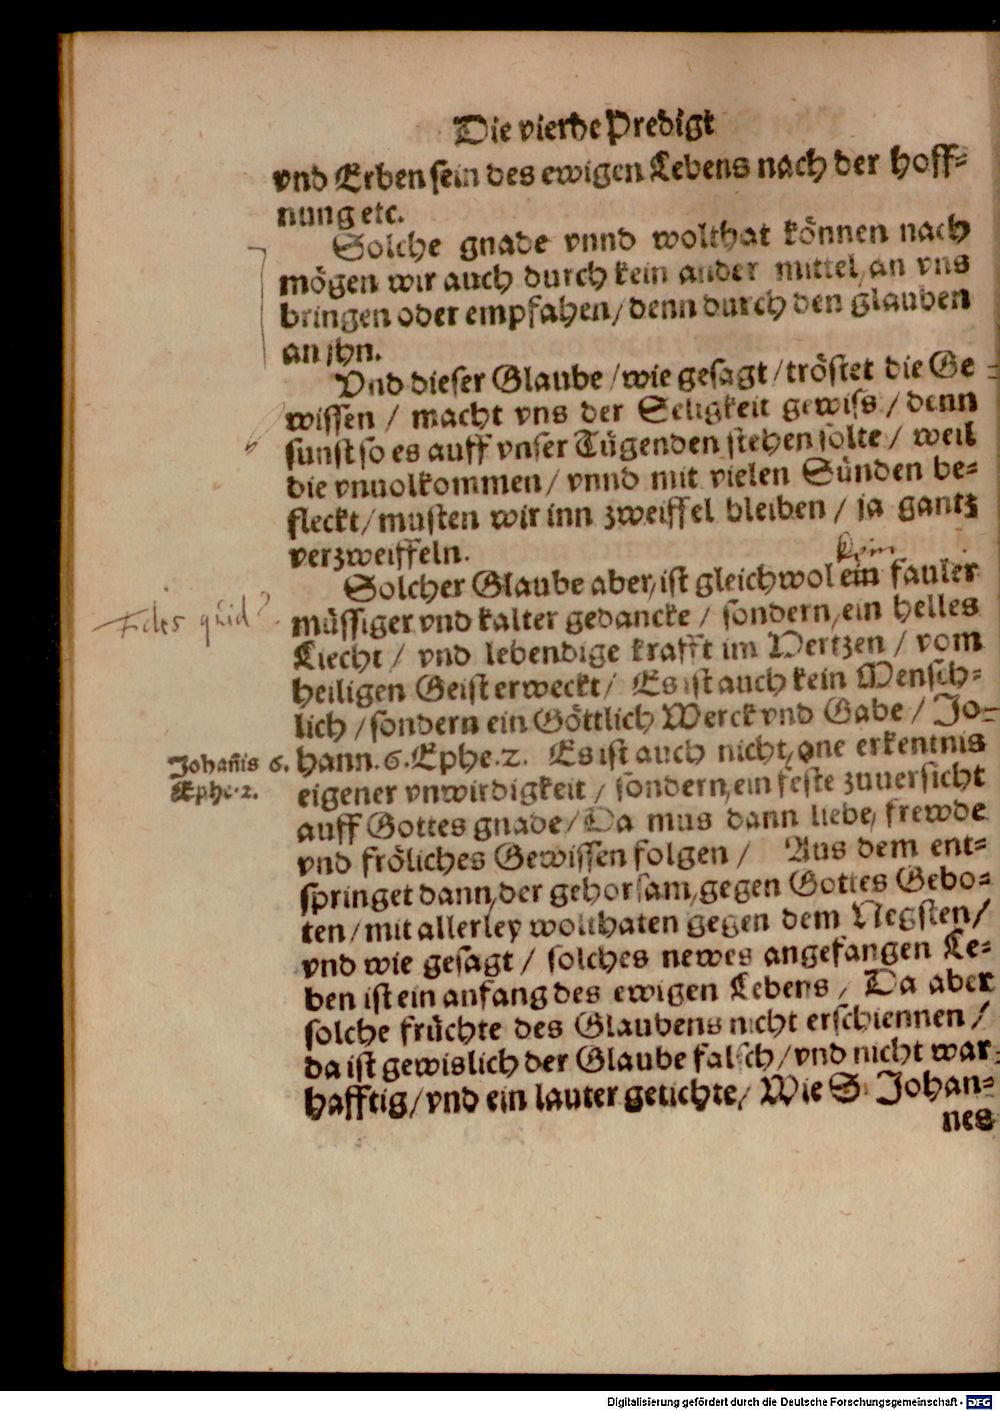 Die vierde Predigt
vnd Erben sein des ewigen Lebens nach der hoff-
nung etc.
Solche gnade vnnd wolthat können nach
mögen wir auch durch kein ander mittel, an vns
bringen oder empfahen / denn durch den glauben
an jhn.
Vnd dieser Glaube / wie gesagt / tröstet die Ge-
wissen / macht vns der Seligkeit gewiss / denn
sunst so es auff vnser Tügenden stehen solte / weil
die vnuolkommen / vnnd mit vielen Sünden be-
fleckt / musten wir inn zweiffel bleiben / ja gantz
verzweiffeln.
kein
Solcher Glaube aber, ist gleichwol ein fauler
Fides quid?
müssiger vnd kalter gedancke / sondern, ein helles
Liecht / vnd lebendige krafft im Hertzen / vom
heiligen Geist erweckt / Es ist auch kein Mensch-
lich / sondern ein Göttlich Werck vnd Gabe / Jo-
Johañis 6.
Ephe. 2.
hann. 6. Ephe. 2. Es ist auch nicht, one erkentnis
eigener vnwirdigkeit / sondern, ein feste zuuersicht
auff Gottes gnade / Da mus dann liebe, frewde
vnd fröliches Gewissen folgen / Aus dem ent-
springet dann, der gehorsam, gegen Gottes Gebo-
ten / mit allerley wolthaten gegen dem Negsten /
vnd wie gesagt / solches newes angefangen Le-
ben ist ein anfang des ewigen Lebens / Da aber
solche früchte des Glaubens nicht erschiennen /
da ist gewislich der Glaube falsch / vnd nicht war-
hafftig / vnd ein lauter getichte / Wie S. Johan-
nes
Digitalisierung gefördert durch die Deutsche Forschungsgemeinschaft - DFG